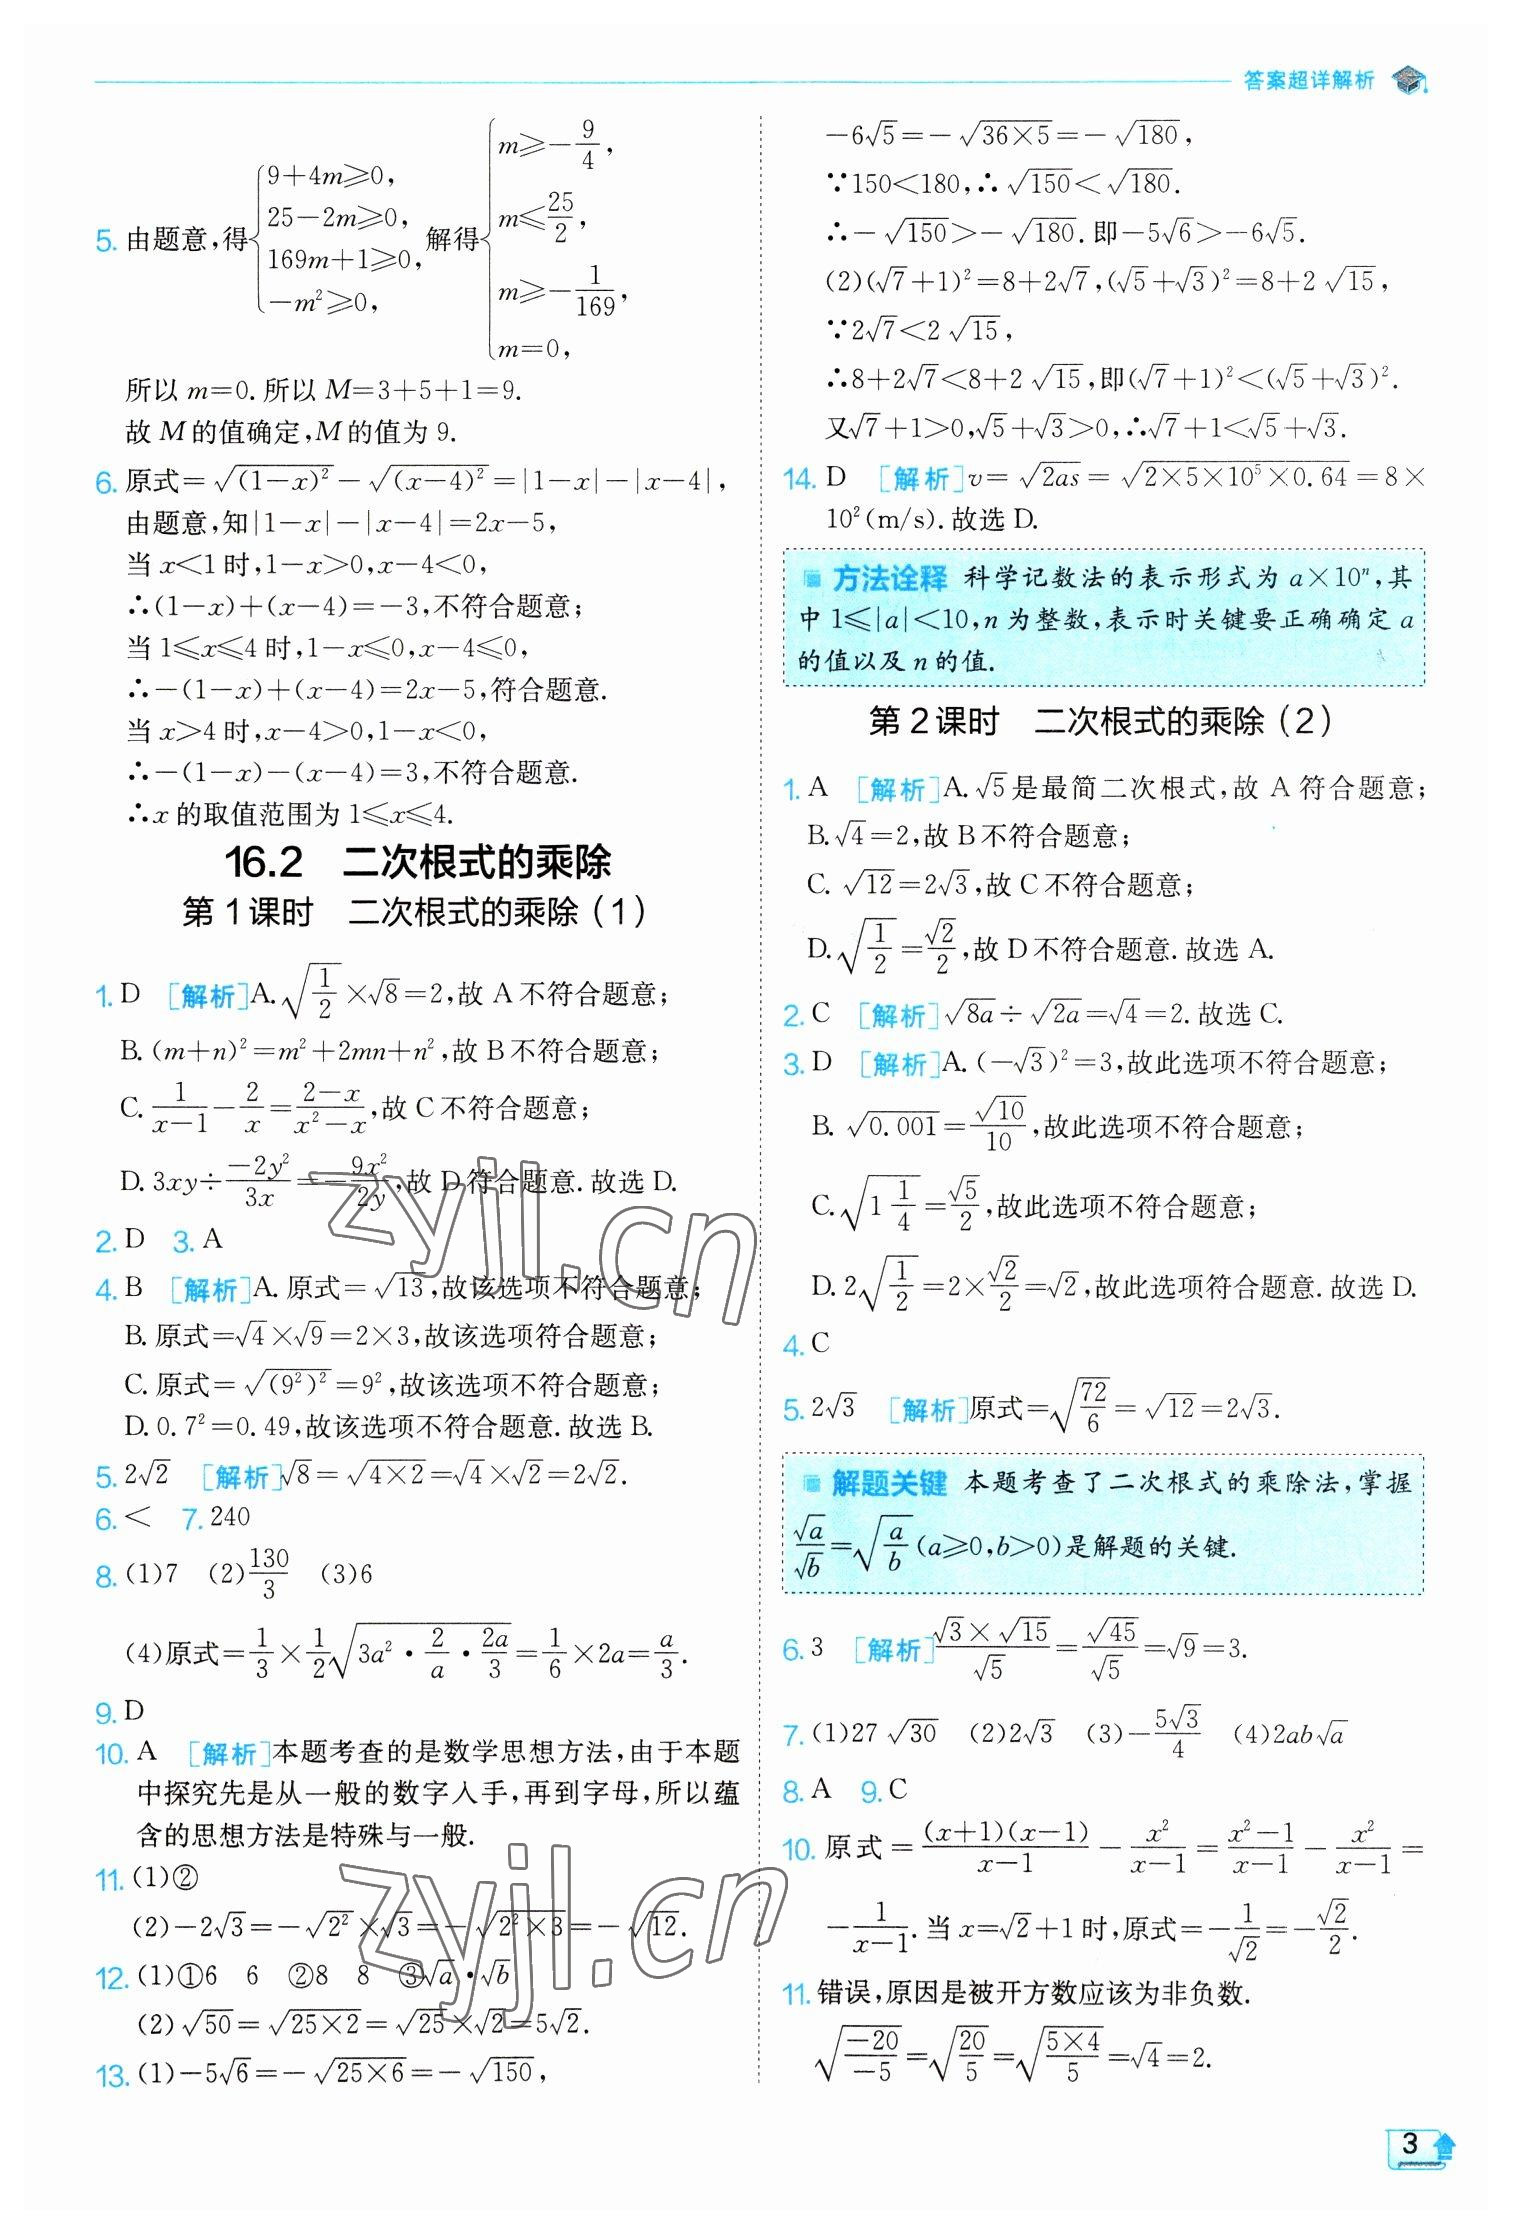 答案超详解析
5. 由题意,得{9+4m≥0, 25−2m≥0, 169m+1≥0, −m²≥0, 解得{m≥−9/4, m≤25/2, m≥−1/169, m=0,
所以 m=0. 所以 M=3+5+1=9.
故 M 的值确定,M 的值为 9.
6. 原式=√(1−x)²−√(x−4)²=|1−x|−|x−4|,
由题意,知|1−x|−|x−4|=2x−5,
当 x<1 时,1−x>0,x−4<0,
∴(1−x)+(x−4)=−3,不符合题意;
当 1≤x≤4 时,1−x≤0,x−4≤0,
∴−(1−x)+(x−4)=2x−5,符合题意.
当 x>4 时,x−4>0,1−x<0,
∴−(1−x)−(x−4)=3,不符合题意.
∴x 的取值范围为 1≤x≤4.
16.2 二次根式的乘除
第 1 课时 二次根式的乘除(1)
1. D [解析]A. √(1/2)×√8=2,故 A 不符合题意;
B. (m+n)²=m²+2mn+n²,故 B 不符合题意;
C. 1/(x−1)−2/x=(2−x)/(x²−x),故 C 不符合题意;
D. 3xy÷(−2y²)/(3x)=−9x²/2y,故 D 符合题意. 故选 D.
2. D 3. A
4. B [解析]A. 原式=√13,故该选项不符合题意;
B. 原式=√4×√9=2×3,故该选项符合题意;
C. 原式=√(9²)²=9²,故该选项不符合题意;
D. 0.7²=0.49,故该选项不符合题意. 故选 B.
5. 2√2 [解析]√8=√(4×2)=√4×√2=2√2.
6. < 7. 240
8. (1)7 (2)130/3 (3)6
(4)原式=1/3×1/2√(3a²·2/a·2a/3)=1/6×2a=a/3.
9. D
10. A [解析]本题考查的是数学思想方法,由于本题
中探究先是从一般的数字入手,再到字母,所以蕴
含的思想方法是特殊与一般.
11. (1)②
(2)−2√3=−√2²×√3=−√(2²×3)=−√12.
12. (1)①6 6 ②8 8 ③√a·√b
(2)√50=√(25×2)=√25×√2=5√2.
13. (1)−5√6=−√(25×6)=−√150,
−6√5=−√(36×5)=−√180,
∵150<180,∴√150<√180.
∴−√150>−√180. 即−5√6>−6√5.
(2)(√7+1)²=8+2√7,(√5+√3)²=8+2√15,
∵2√7<2√15,
∴8+2√7<8+2√15,即(√7+1)²<(√5+√3)².
又√7+1>0,√5+√3>0,∴√7+1<√5+√3.
14. D [解析]v=√(2as)=√(2×5×10⁵×0.64)=8×
10²(m/s). 故选 D.
方法诠释 科学记数法的表示形式为 a×10ⁿ,其
中 1≤|a|<10,n 为整数,表示时关键要正确确定 a
的值以及 n 的值.
第 2 课时 二次根式的乘除(2)
1. A [解析]A. √5是最简二次根式,故 A 符合题意;
B. √4=2,故 B 不符合题意;
C. √12=2√3,故 C 不符合题意;
D. √(1/2)=√2/2,故 D 不符合题意. 故选 A.
2. C [解析]√8a÷√2a=√4=2. 故选 C.
3. D [解析]A. (−√3)²=3,故此选项不符合题意;
B. √0.001=√10/10,故此选项不符合题意;
C. √(1 1/4)=√5/2,故此选项不符合题意;
D. 2√(1/2)=2×√2/2=√2,故此选项符合题意. 故选 D.
4. C
5. 2√3 [解析]原式=√(72/6)=√12=2√3.
解题关键 本题考查了二次根式的乘除法,掌握
√a/√b=√(a/b)(a≥0,b>0)是解题的关键.
6. 3 [解析](√3×√15)/√5=√45/√5=√9=3.
7. (1)27√30 (2)2√3 (3)−5√3/4 (4)2ab√a
8. A 9. C
10. 原式=(x+1)(x−1)/(x−1)−x²/(x−1)=(x²−1)/(x−1)−x²/(x−1)=
−1/(x−1). 当 x=√2+1 时,原式=−1/√2=−√2/2.
11. 错误,原因是被开方数应该为非负数.
√(−20/−5)=√(20/5)=√((5×4)/5)=√4=2.
zyjl.cn
zyjl.cn
3